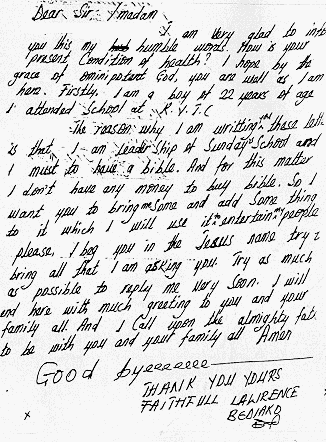 Dear Sir /madam
I am very glad to info
you this my humble words. How is your
present Condition of health? I hope by the
grace of ominipotent God, you are well as I am
here. Firstly, I am a boy of 22 years of age
I attended School at R.Y.T.C
The reason why I am writting these lette
is that, I am leader Ship of Sunday School and
I must to have a bible. And for this matter
I don't have any money to buy bible. So I
want you to bring me Some and add Some thing
to it which I will use it to entertain people
please, I beg you in the Jesus name try &
bring all that I am asking you. Try as much
as possible to reply me very Soon. I will
end here with much greeting to you and your
family all. And I Call upon the almighty fat
to be with you and your family all Amen
Good byeeeeeee
THANK YOU YOURS
FAITHFULL LAWRENCE
BEDIAKO